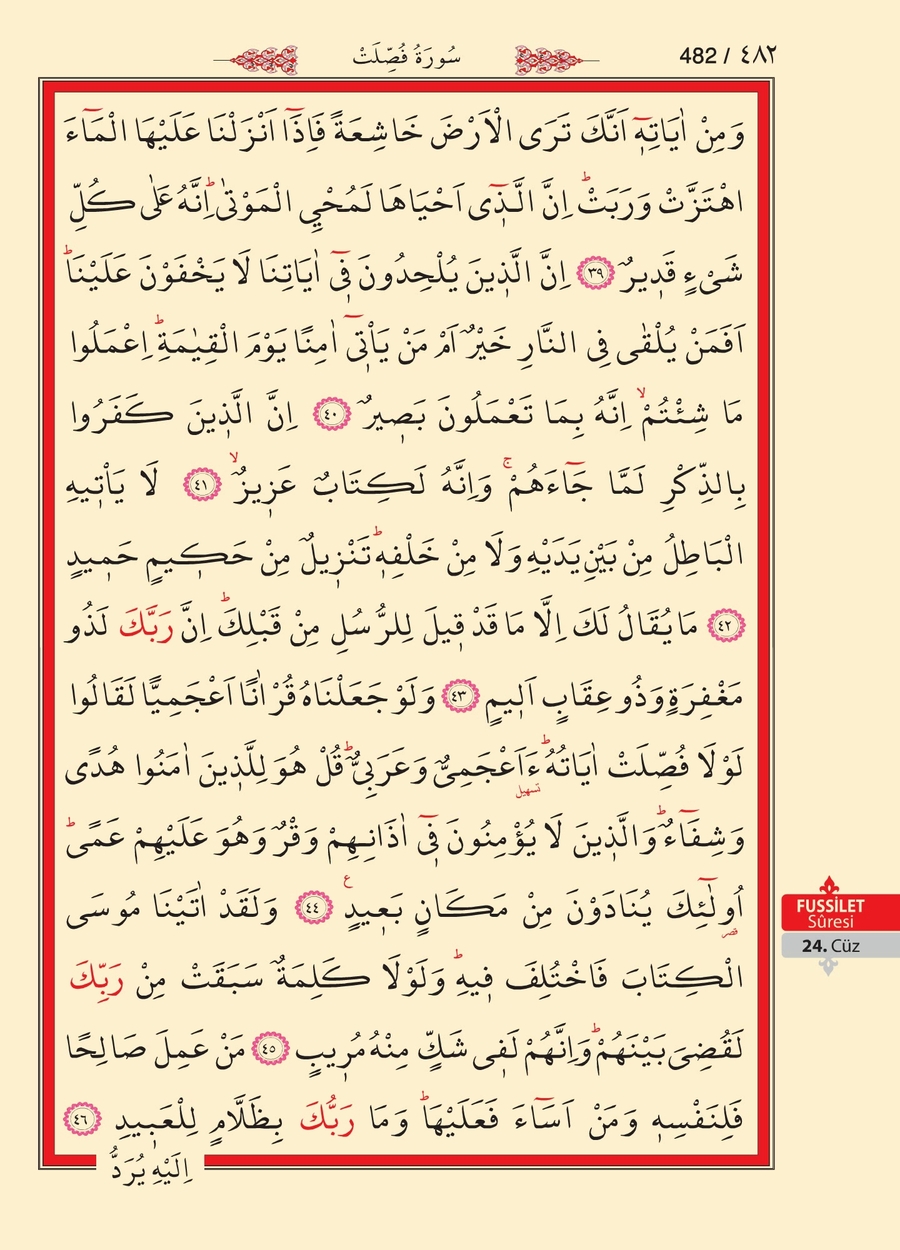 482 / ٤٨٢
سُورَةُ فُصِّلَتْ
وَمِنْ اٰيَاتِه۪ٓ اَنَّكَ تَرَى الْاَرْضَ خَاشِعَةً فَاِذَٓا اَنْزَلْنَا عَلَيْهَا الْمَٓاءَ
اهْتَزَّتْ وَرَبَتْۜ اِنَّ الَّذ۪ٓى اَحْيَاهَا لَمُحْيِ الْمَوْتٰىۜ اِنَّهُ عَلٰى كُلِّ
شَيْءٍ قَد۪يرٌ ﴿٣٩﴾ اِنَّ الَّذ۪ينَ يُلْحِدُونَ ف۪ٓى اٰيَاتِنَا لَا يَخْفَوْنَ عَلَيْنَاۜ
اَفَمَنْ يُلْقٰى فِى النَّارِ خَيْرٌ اَمْ مَنْ يَأْت۪ٓى اٰمِنًا يَوْمَ الْقِيٰمَةِۜ اِعْمَلُوا
مَا شِئْتُمْۙ اِنَّهُ بِمَا تَعْمَلُونَ بَص۪يرٌ ﴿٤٠﴾ اِنَّ الَّذ۪ينَ كَفَرُوا
بِالذِّكْرِ لَمَّا جَٓاءَهُمْۚ وَاِنَّهُ لَكِتَابٌ عَز۪يزٌۙ ﴿٤١﴾ لَا يَأْت۪يهِ
الْبَاطِلُ مِنْ بَيْنِ يَدَيْهِ وَلَا مِنْ خَلْفِه۪ۜ تَنْز۪يلٌ مِنْ حَك۪يمٍ حَم۪يدٍ
﴿٤٢﴾ مَا يُقَالُ لَكَ اِلَّا مَا قَدْ ق۪يلَ لِلرُّسُلِ مِنْ قَبْلِكَۜ اِنَّ رَبَّكَ لَذُو
مَغْفِرَةٍ وَذُو عِقَابٍ اَل۪يمٍ ﴿٤٣﴾ وَلَوْ جَعَلْنَاهُ قُرْاٰنًا اَعْجَمِيًّا لَقَالُوا
لَوْلَا فُصِّلَتْ اٰيَاتُهُۜ ءَاَعْجَمِىٌّ وَعَرَبِىٌّۜ قُلْ هُوَ لِلَّذ۪ينَ اٰمَنُوا هُدًى
تسهيل
وَشِفَٓاءٌۜ وَالَّذ۪ينَ لَا يُؤْمِنُونَ ف۪ٓى اٰذَانِهِمْ وَقْرٌ وَهُوَ عَلَيْهِمْ عَمًىۜ
اُو۬لٰٓئِكَ يُنَادَوْنَ مِنْ مَكَانٍ بَع۪يدٍ۟ ع ﴿٤٤﴾ وَلَقَدْ اٰتَيْنَا مُوسَى
قصر
الْكِتَابَ فَاخْتُلِفَ ف۪يهِۜ وَلَوْلَا كَلِمَةٌ سَبَقَتْ مِنْ رَبِّكَ
لَقُضِىَ بَيْنَهُمْۜ وَاِنَّهُمْ لَف۪ى شَكٍّ مِنْهُ مُر۪يبٍ ﴿٤٥﴾ مَنْ عَمِلَ صَالِحًا
فَلِنَفْسِه۪ وَمَنْ اَسَٓاءَ فَعَلَيْهَاۜ وَمَا رَبُّكَ بِظَلَّامٍ لِلْعَب۪يدِ ﴿٤٦﴾
اِلَيْهِ يُرَدُّ
FUSSİLET
Sûresi
24. Cüz